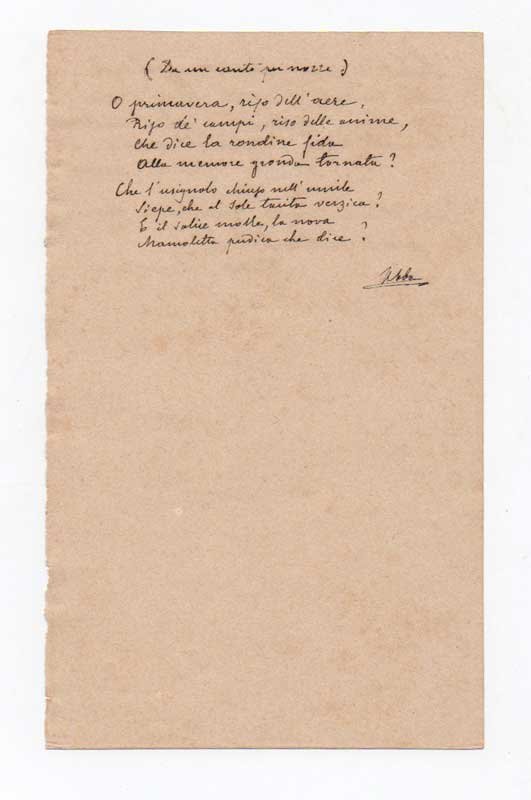 (Da un canto per nozze.)
O primavera, riso dell'aere,
Riso de' campi, riso delle anime,
Che dice la rondine fida
Alla memore gronda tornata?
Che l'usignolo chiuso nell'umile
Siepe, che al sole tacita verzica?
E il salice molle, la nova
Mamoletta pudica che dice?
Abba